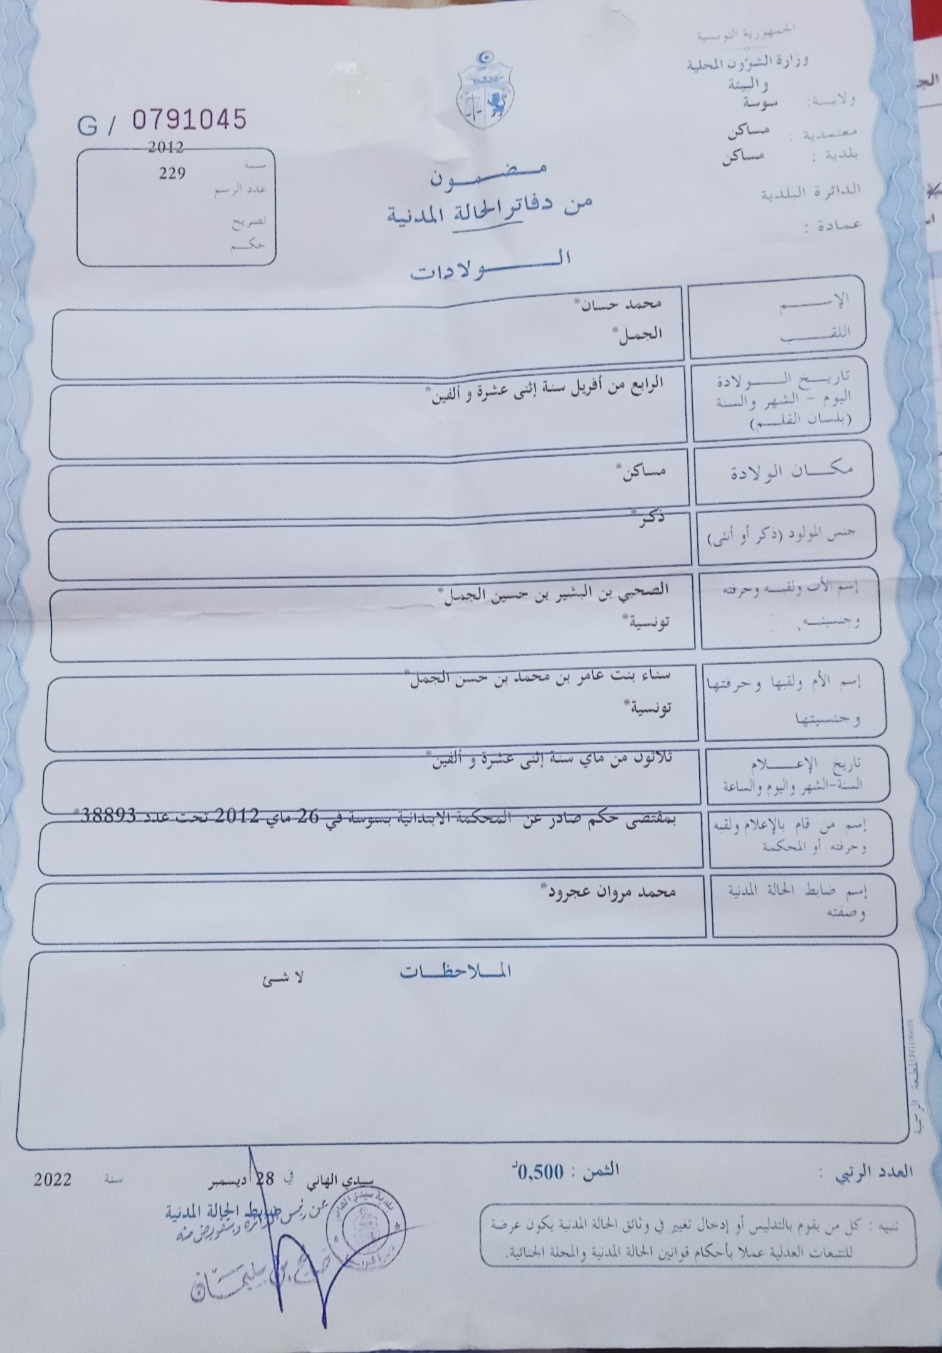 الجمهورية التونسية
وزارة الشؤون المحلية
والبيئة
ولاية: سوسة
معتمدية : مساكن
بلدية : مساكن
الدائرة البلدية
عمادة :
G / 0791045
سنة 2012
عدد الرسم 229
تصريح
حكم
مضمون
من دفاتر الحالة المدنية
الولادات
الإسم محمد حسان*
اللقب الجمل*
تاريخ الولادة
اليوم - الشهر والسنة
(بلسان القلم)
الرابع من أفريل سنة إثنى عشرة و ألفين*
مكان الولادة مساكن*
جنس المولود (ذكر أو أنثى) ذكر*
إسم الأب ولقبه وحرفته
وجنسيته
الصحبي بن البشير بن حسين الجمل*
تونسية*
إسم الأم ولقبها وحرفتها
وجنسيتها
سناء بنت عامر بن محمد بن حسن الجمل*
تونسية*
تاريخ الإعلام
السنة-الشهر واليوم والساعة
ثلاثون من ماي سنة إثنى عشرة و ألفين*
إسم من قام بالإعلام ولقبه
وحرفته أو المحكمة
بمقتضى حكم صادر عن المحكمة الابتدائية بسوسة في 26 ماي 2012 تحت عدد 38893*
إسم ضابط الحالة المدنية
وصفته
محمد مروان عجرود*
الملاحظات
لا شئ
العدد الرتبي :
الثمن : 0,500د
سيدي الهاني في 28 ديسمبر سنة 2022
ضابط الحالة المدنية
تنبيه : كل من يقوم بالتدليس أو إدخال تغيير في وثائق الحالة المدنية يكون عرضة
للتتبعات العدلية عملا بأحكام قوانين الحالة المدنية والمجلة الجنائية.